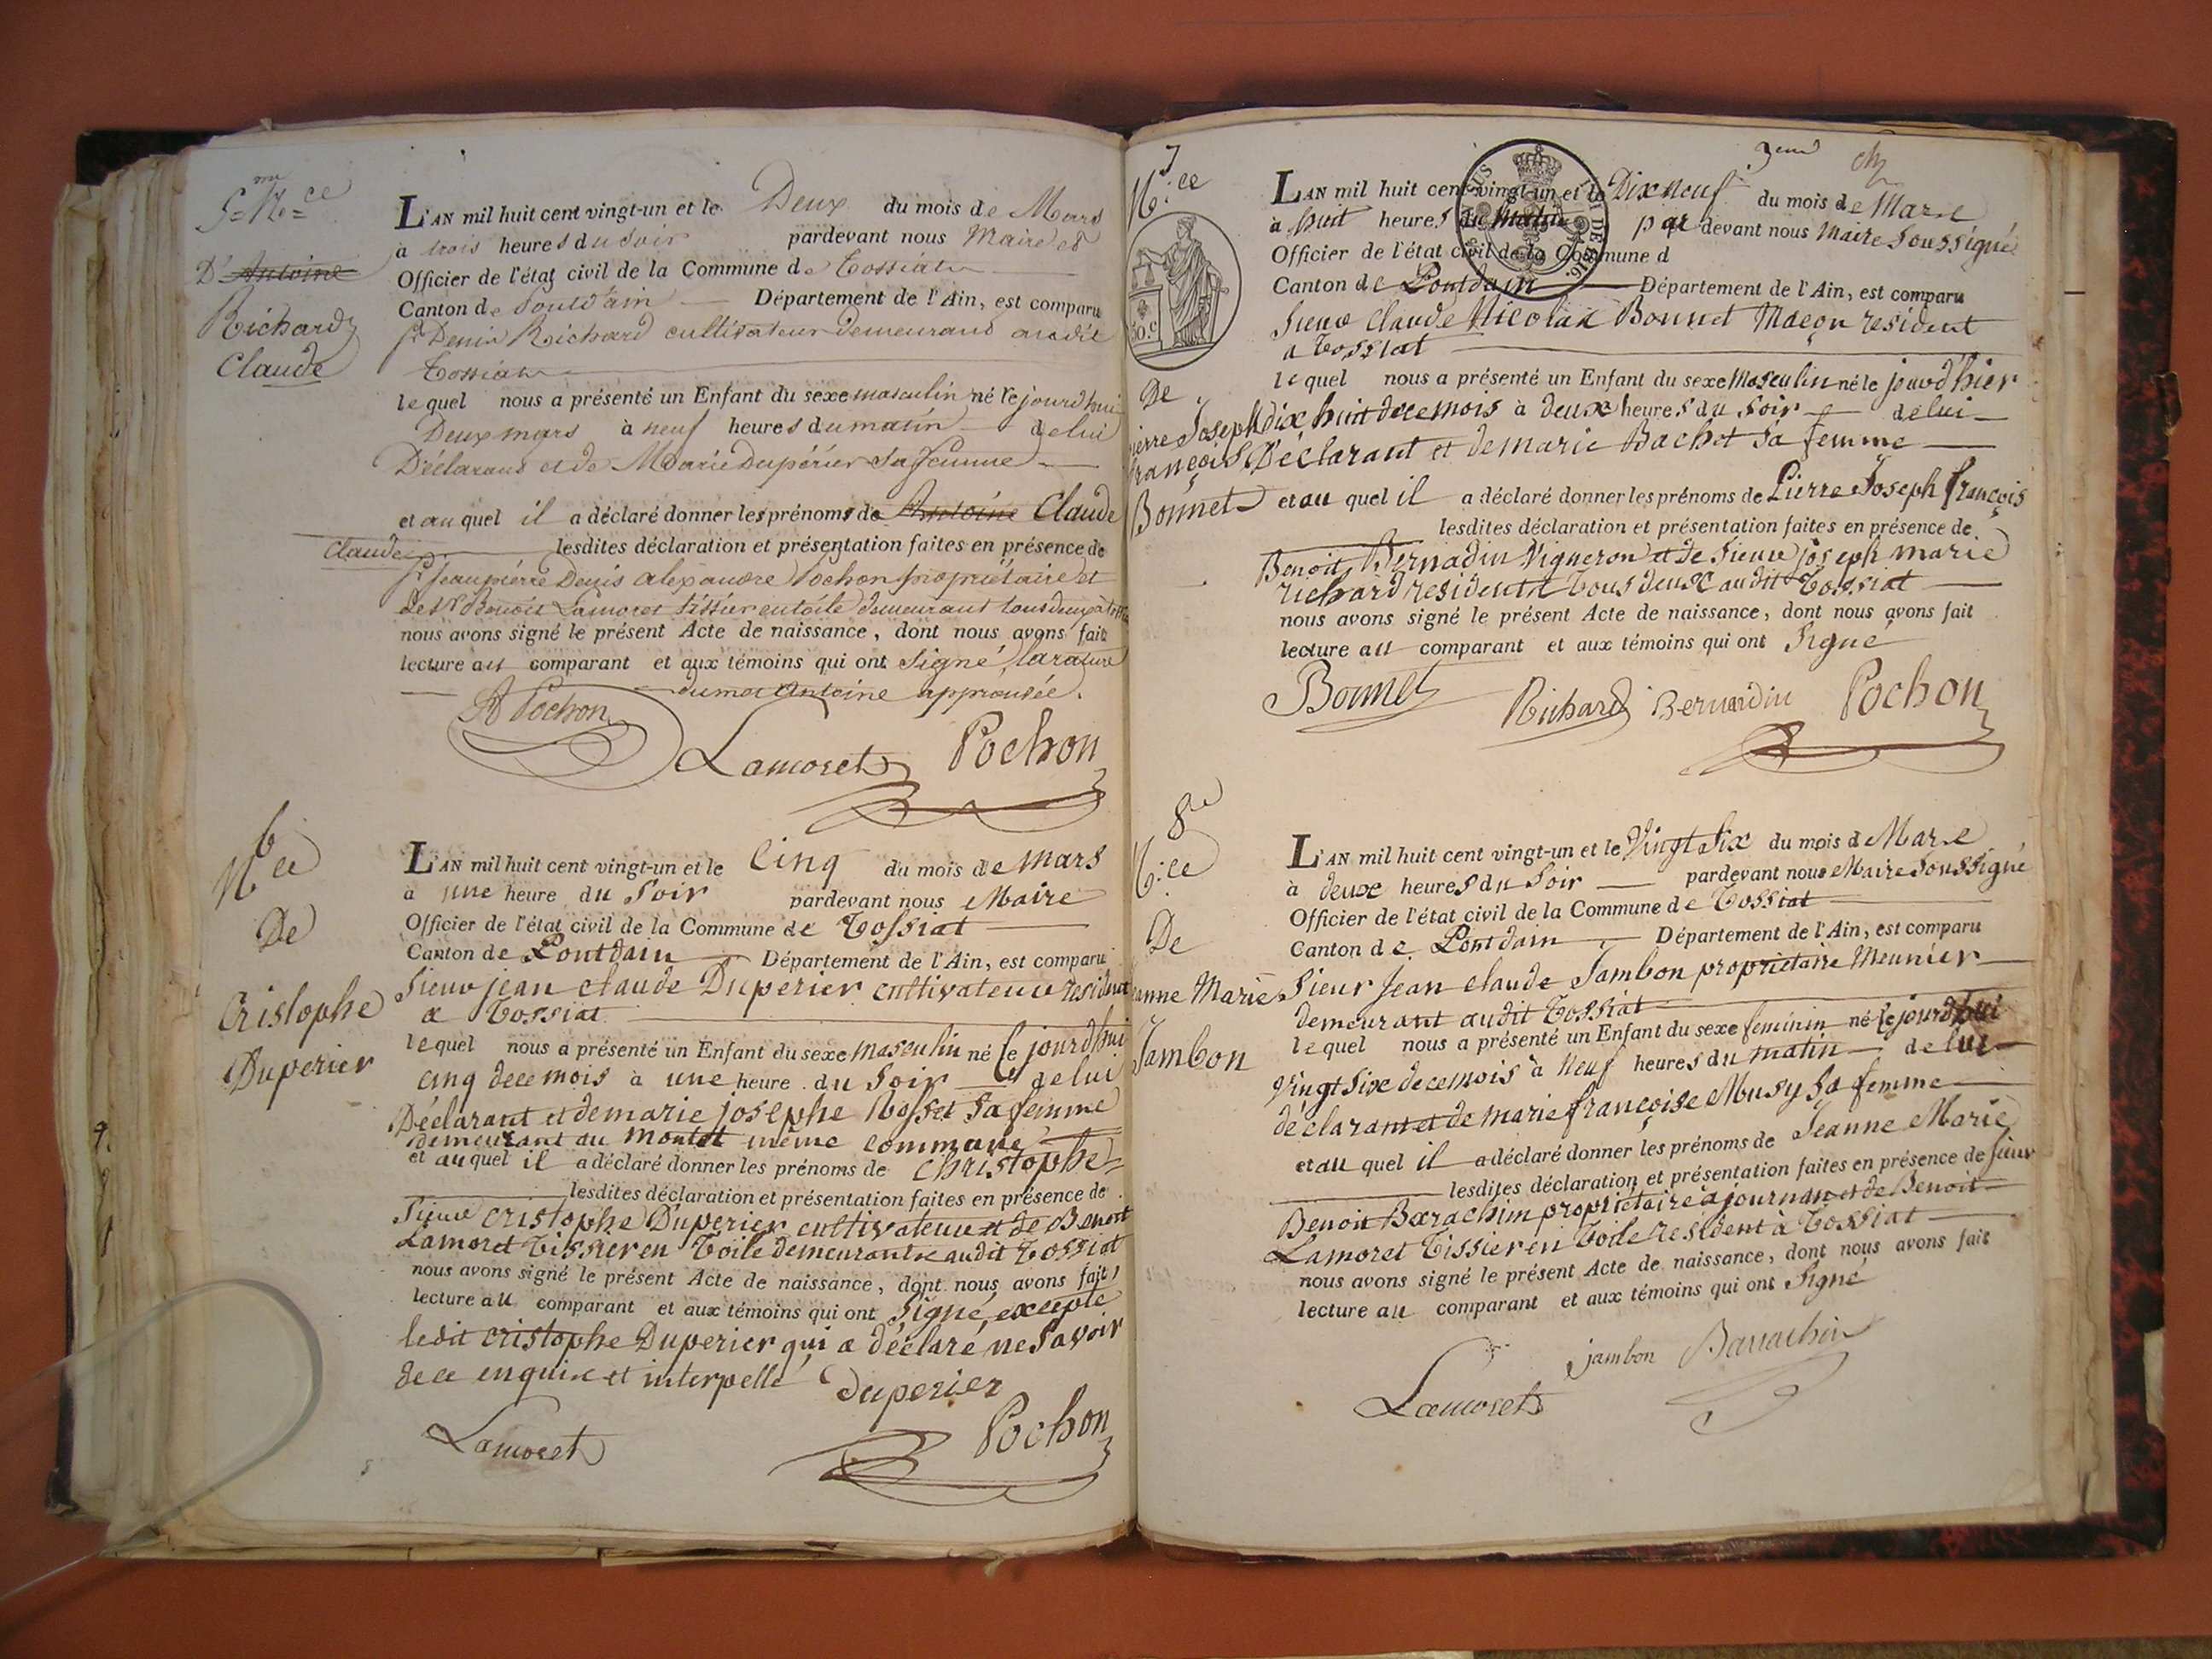 5me Nce
De Antoine
Richard
Claude
L'AN mil huit cent vingt-un et le Deux du mois de Mars
à trois heures du soir pardevant nous Maire et
Officier de l'état civil de la Commune de Tossiat
Canton de Pont d'ain Département de l'Ain, est comparu
Sr Denis Richard cultivateur demeurant audit
Tossiat
lequel nous a présenté un Enfant du sexe masculin né le jourd'hui
Deux mars à neuf heures du matin de lui
Déclarant et de Marie Dupérier sa femme
et auquel il a déclaré donner les prénoms de Antoine Claude
Claude lesdites déclaration et présentation faites en présence de
Sr Jeanpierre Denis alexandre Pochon propriétaire et
de Sr Benoit Lamoret tissier en toile demeurant tous deux à
nous avons signé le présent Acte de naissance, dont nous avons fait
lecture au comparant et aux témoins qui ont signé, la rature
du mot Antoine approuvée.
A Pochon
Lamoret Pochon
6
Nce
De
Cristophe
Duperier
L'AN mil huit cent vingt-un et le Cinq du mois de mars
à une heure du Soir pardevant nous Maire
Officier de l'état civil de la Commune de Tossiat
Canton de Pontdain Département de l'Ain, est comparu
Sieur jean claude Duperier cultivateur resident
a Tossiat
lequel nous a présenté un Enfant du sexe masculin né le jourd'hui
cinq de ce mois à une heure du Soir de lui
Déclarant et de marie josephe Rosset sa femme
demeurant au montet même commune
et auquel il a déclaré donner les prénoms de Christophe
lesdites déclaration et présentation faites en présence de
Sieur cristophe Duperier cultivateur et de Benoit
Lamoret Tissier en Toile demeurant audit Tossiat
nous avons signé le présent Acte de naissance, dont nous avons fait
lecture au comparant et aux témoins qui ont Signé, excepté
ledit cristophe Duperier qui a déclaré ne savoir
de ce enquis et interpellé Duperier
Lamoret Pochon
3eme
7
N.ce
30.c
De
Pierre Joseph
françois
Bonnet
L'AN mil huit cent vingt-un et le Dixneuf du mois de Mars
à huit heures du Matin par devant nous Maire Soussigné
Officier de l'état civil de la Commune d
Canton de Pontdain Département de l'Ain, est comparu
Sieur Claude Nicolax Bonnet Maçon resident
a Tossiat
lequel nous a présenté un Enfant du sexe Masculin né le jourd'hier
dix huit de ce mois à deux heures du Soir de lui
Déclarant et de marie Bachet Sa femme
et au quel il a déclaré donner les prénoms de Pierre Joseph françois
lesdites déclaration et présentation faites en présence de
Benoit Bernadin Vigneron et de Sieur joseph marie
richard resident Tous deux audit Tossiat
nous avons signé le présent Acte de naissance, dont nous avons fait
lecture au comparant et aux témoins qui ont Signé
Bonnet Richard Bernardin Pochon
8e
N.ce
De
Jeanne Marie
Jambon
L'AN mil huit cent vingt-un et le Vingt Six du mois de Mars
à deux heures du Soir pardevant nous Maire Soussigné
Officier de l'état civil de la Commune de Tossiat
Canton de Pontdain Département de l'Ain, est comparu
Sieur Jean claude Jambon propriétaire Meunier
demeurant audit Tossiat
lequel nous a présenté un Enfant du sexe feminin né le jourd'hui
Vingt Six de ce mois à Neuf heures du matin de lui
déclarant et de marie françoise Musy Sa femme
et au quel il a déclaré donner les prénoms de Jeanne Marie
lesdites déclaration et présentation faites en présence de Sieur
Benoit Barachim propriétaire a journan et de Benoit
Lamoret Tissier en Toile resident à Tossiat
nous avons signé le présent Acte de naissance, dont nous avons fait
lecture au comparant et aux témoins qui ont Signé
jambon Barrachin
Lamoret